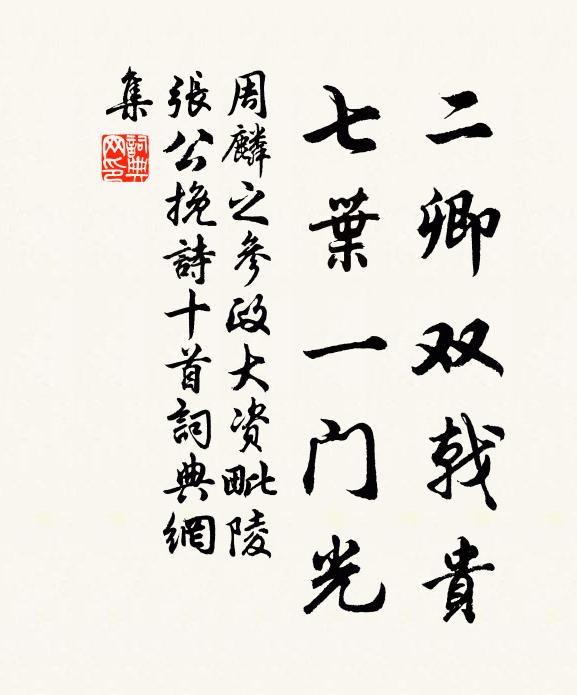 二卿双戟貴
七葉一门光
周麟之參政大资毗陵
張公挽詩十首詞典網
集
詞典网印